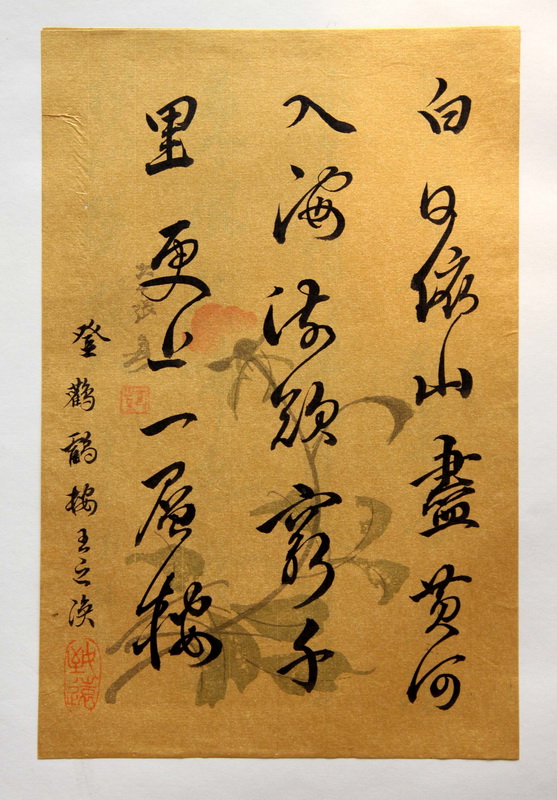 白日依山盡黄河
入海流欲窮千
里更上一層樓
登鸛鵲樓王之渙
致遠